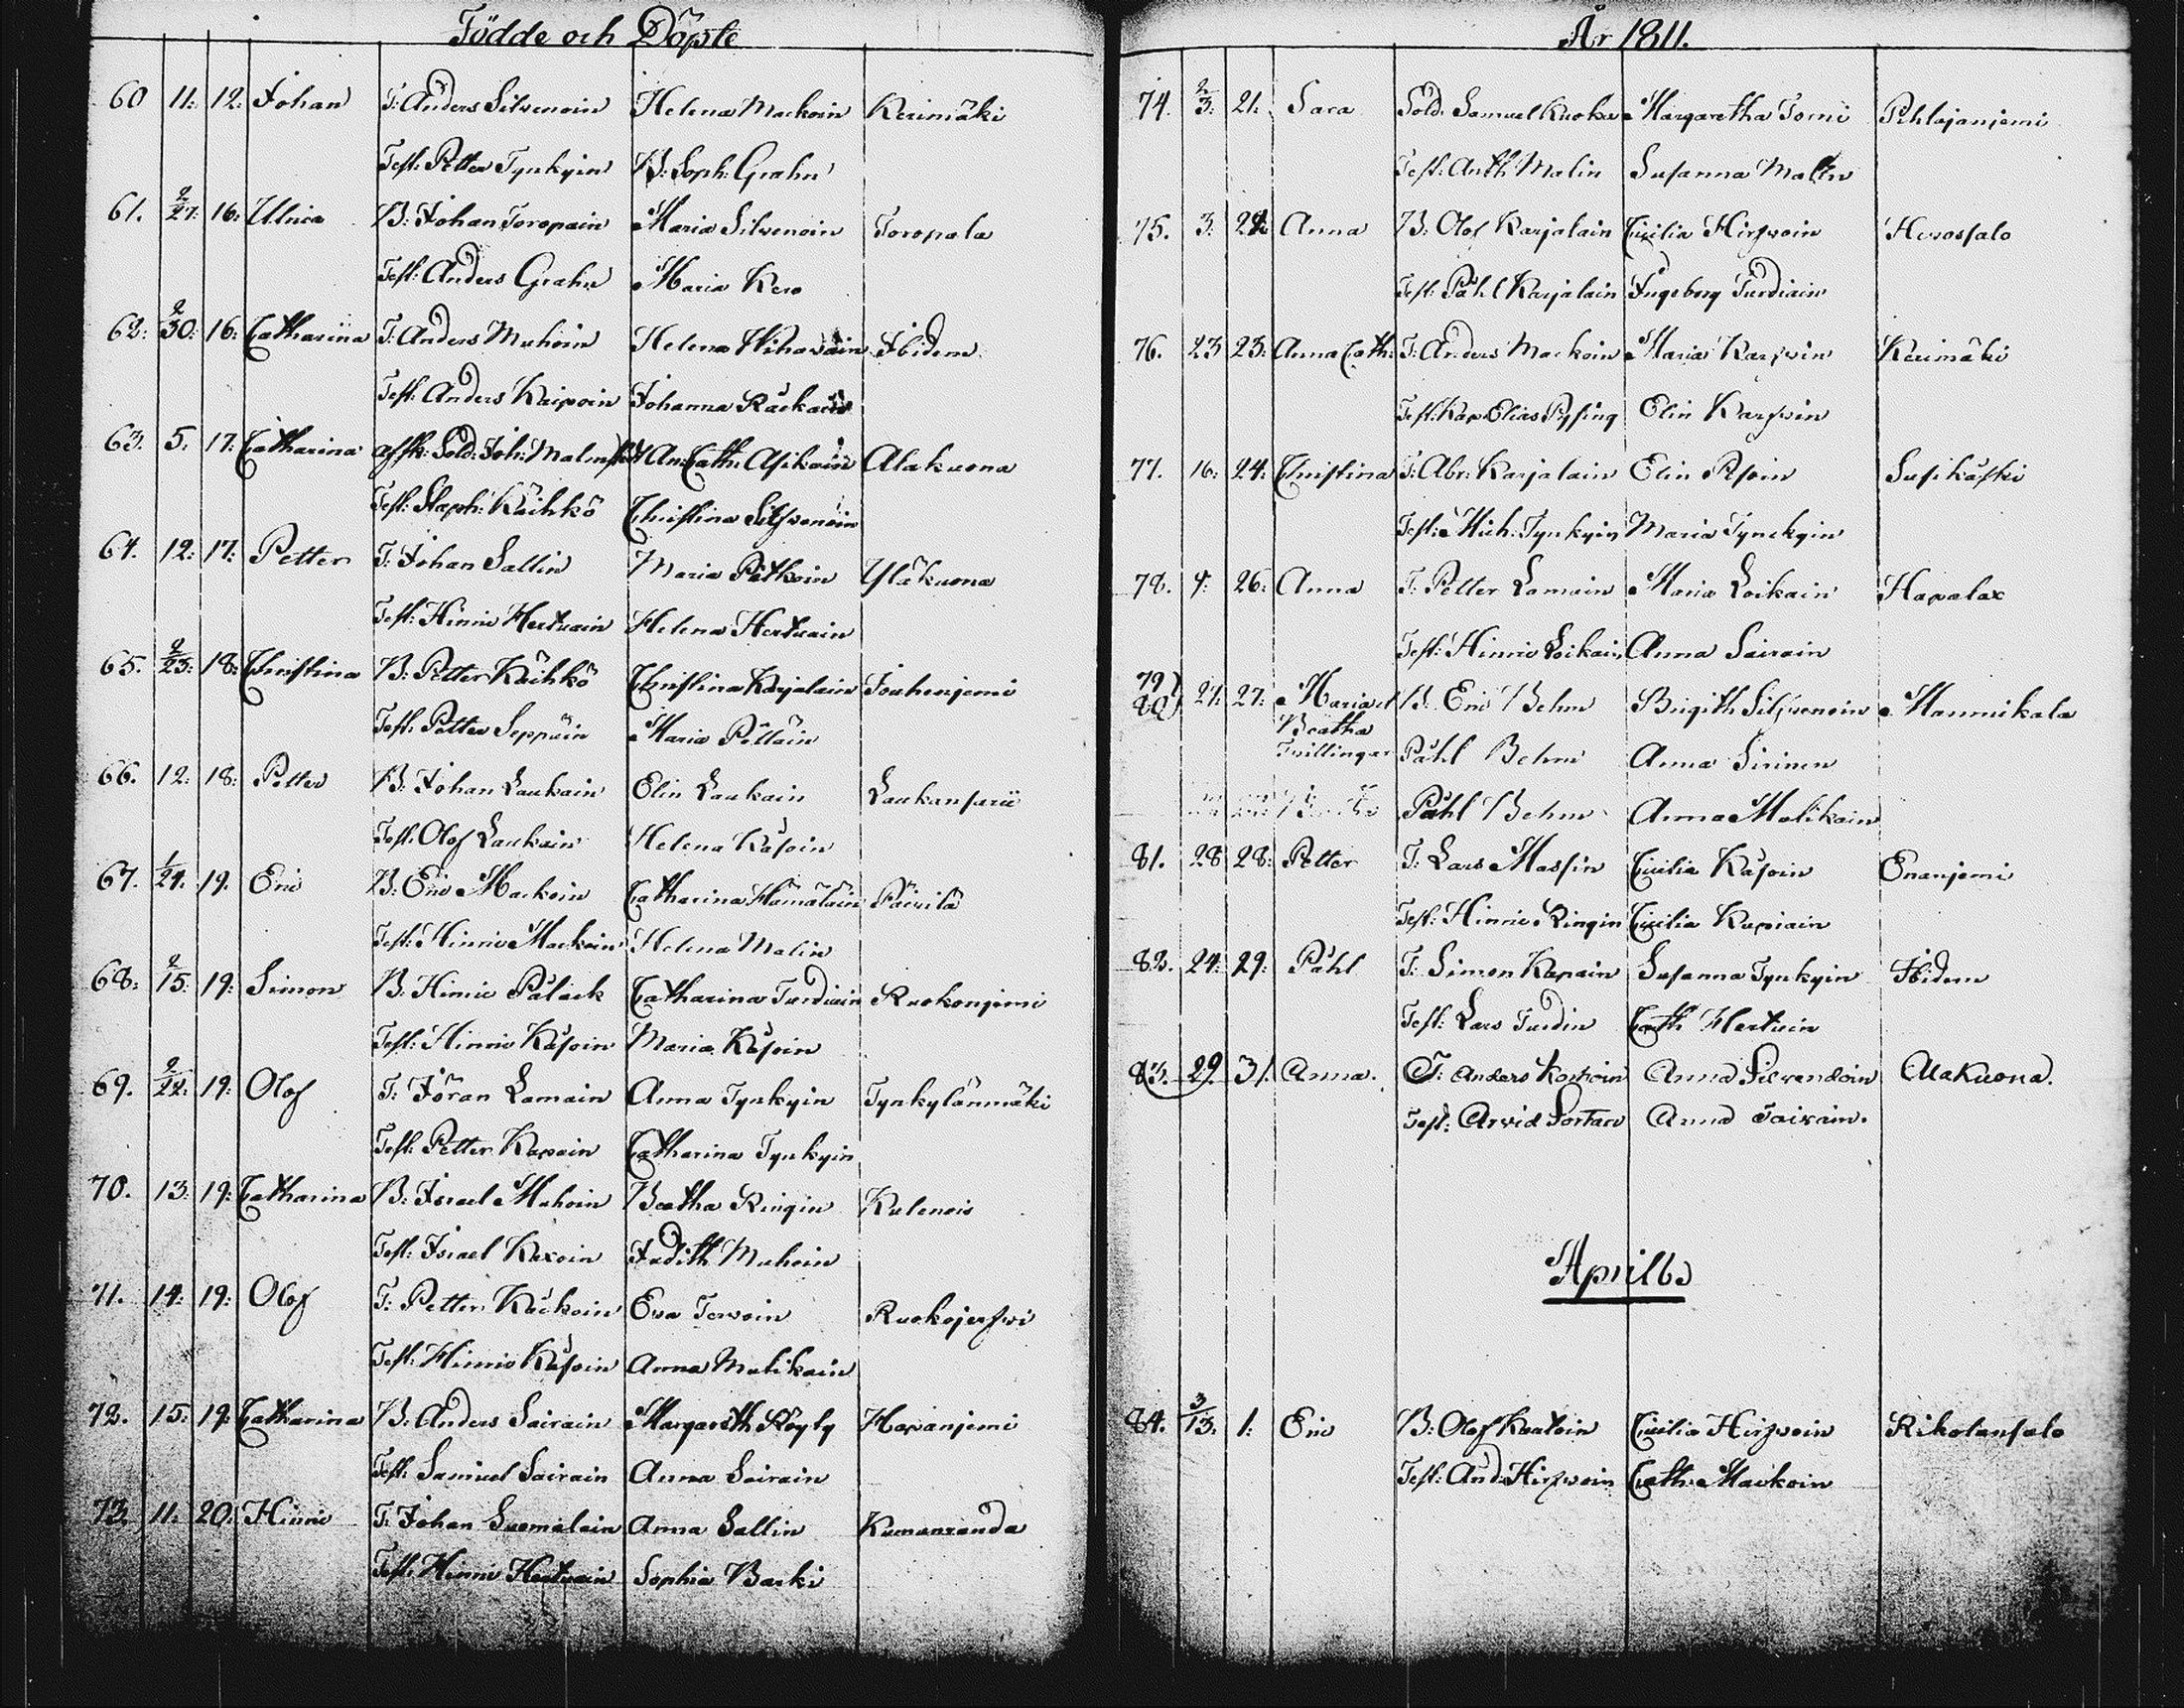 Födde och Döpte
60 11: 12: Johan T: Anders Silvenoin Helena Mackoin Kerimäki
Test: Petter Tynkyin B: Soph: Grahn
61. 2/27: 16: Ulrica B: Johan Toropain Maria Silvenoin Toropala
Test: Anders Grahn Maria Kero
62: 2/30: 16: Catharina T: Anders Muhoin Helena Ibidem
Test: Anders Kaipoin Johanna
63. 5. 17: Catharina Sold: Joh: An: Cath: Asikain Alakuona
Test: Staph: Käihkö Christina Silfvenoin
64. 12: 17: Petter T: Johan Sallin Maria Pitkoin Yläkuona
Test: Hinric Hertuain Helena Hertuain
65. 2/23: 18: Christina B: Petter Käihkö Christina Karjalain Jouhenjemi
Test: Petter Seppäin Maria Pölläin
66. 12: 18: Petter B: Johan Laukain Elin Laukain Laukansarii
Test: Olof Laukain Helena Käsoin
67. 1/24. 19. Eric B: Eric Mackoin Catharina Hämäläin Päivilä
Test: Hinric Mackoin Helena Malin
68: 2/15: 19: Simon B: Hinric Catharina Turdiain Ruokonjemi
Test: Hinric Käsoin Maria Käsoin
69. 2/22: 19: Olof T: Jöran Lamain Anna Tynkyin Tynkylänmäki
Test: Petter Kapain Catharina Tynkyin
70. 13: 19: Catharina B: Israel Muhoin Beatha Ringin Kulenois
Test: Israel Judith Muhoin
71. 14: 19: Olof T: Petter Käckoin Eva Tervoin Ruokojerfwi
Test: Hinric Käsoin Anna Malikain
72. 15: 19: Catharina B: Anders Sairain Margareth Röyly Hapanjemi
Test: Samuel Sairain Anna Sairain
73. 11: 20: Hinric T: Johan Suomalain Anna Sallin Kumunranda
Test: Hinric Hertuain Sophia Backi
År 1811.
74. 2/3: 21: Sara Sold. Samuel Kuoka Margaretha Torni Pihlajanjemi
Test: Anth Malin Susanna Malin
75. 3: 22: Anna B: Olof Karjalain Cicilia Hirfwoin Herossalo
Test: Påhl Karjalain Ingeborg Turdiain
76. 23 23: Anna Cath: T: Anders Mackoin Maria Karfwin Kerimäki
Test: Kap: Elias Pipping Elin Karfwin
77. 16: 24: Christina T: Abr: Karjalain Elin Susikäski
Test: Mich: Tynkyin Maria Tynckyin
78. 4: 26: Anna T: Petter Lamain Maria Loikain Hapalax
Test: Hinric Loikain Anna Sairain
79) 80) 27: 27: Maria et B: Eric Behm Brigith Silfvenoin Mannikala
Beatha
Tvillingar Påhl Behm Anna Sirinen
Påhl Behm Anna Malikain
81. 28 28: Petter T: Lars Massin Cicilia Käsoin Enanjemi
Test: Hinric Ringin Cicilia Kupiain
82. 24: 29: Påhl T: Simon Kapain Susanna Tynkyin Ibidem
Test: Lars Turdin Cath Hertuin
83. 29. 31. Anna. T: Anders Korhoin Anna Silvendoin Alakuona.
Test: Arvid Sortan Anna Tairain.
Aprill
84. 3/13: 1: Eric B: Olof Kautoin Cicilia Hirfwoin Rikolansalo
Test: And: Hirfwoin Cath: Mackoin